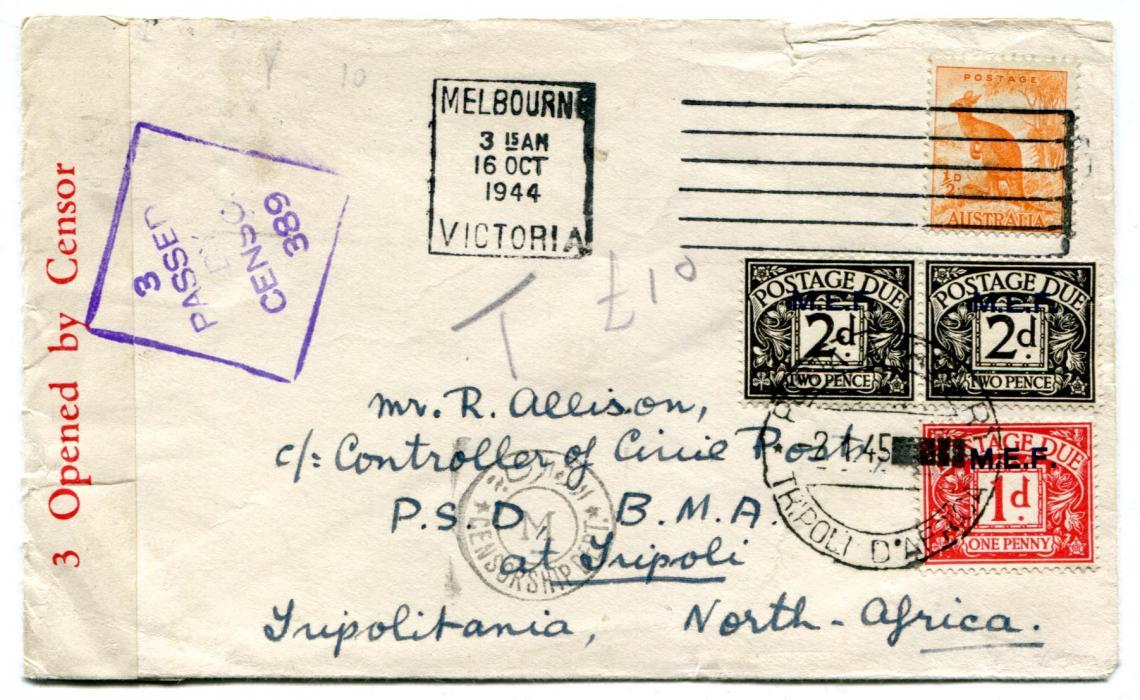 3 Opened by Censor
3
PASSED
CENSOR
389
10
MELBOURNE
3 15AM
16 OCT
1944
VICTORIA
POSTAGE
½D
AUSTRALIA
T
POSTAGE DUE
M.E.F.
2d.
TWO PENCE
POSTAGE DUE
M.E.F.
2d.
TWO PENCE
POSTAGE DUE
M.E.F.
1d.
ONE PENNY
2.1.45
TRIPOLI D'AFRICA
Mr. R. Allison,
c/: Controller of Civil Posts
P.S.D. B.M.A.
at Tripoli
Tripolitania, North-Africa.
M
CENSORSHIP